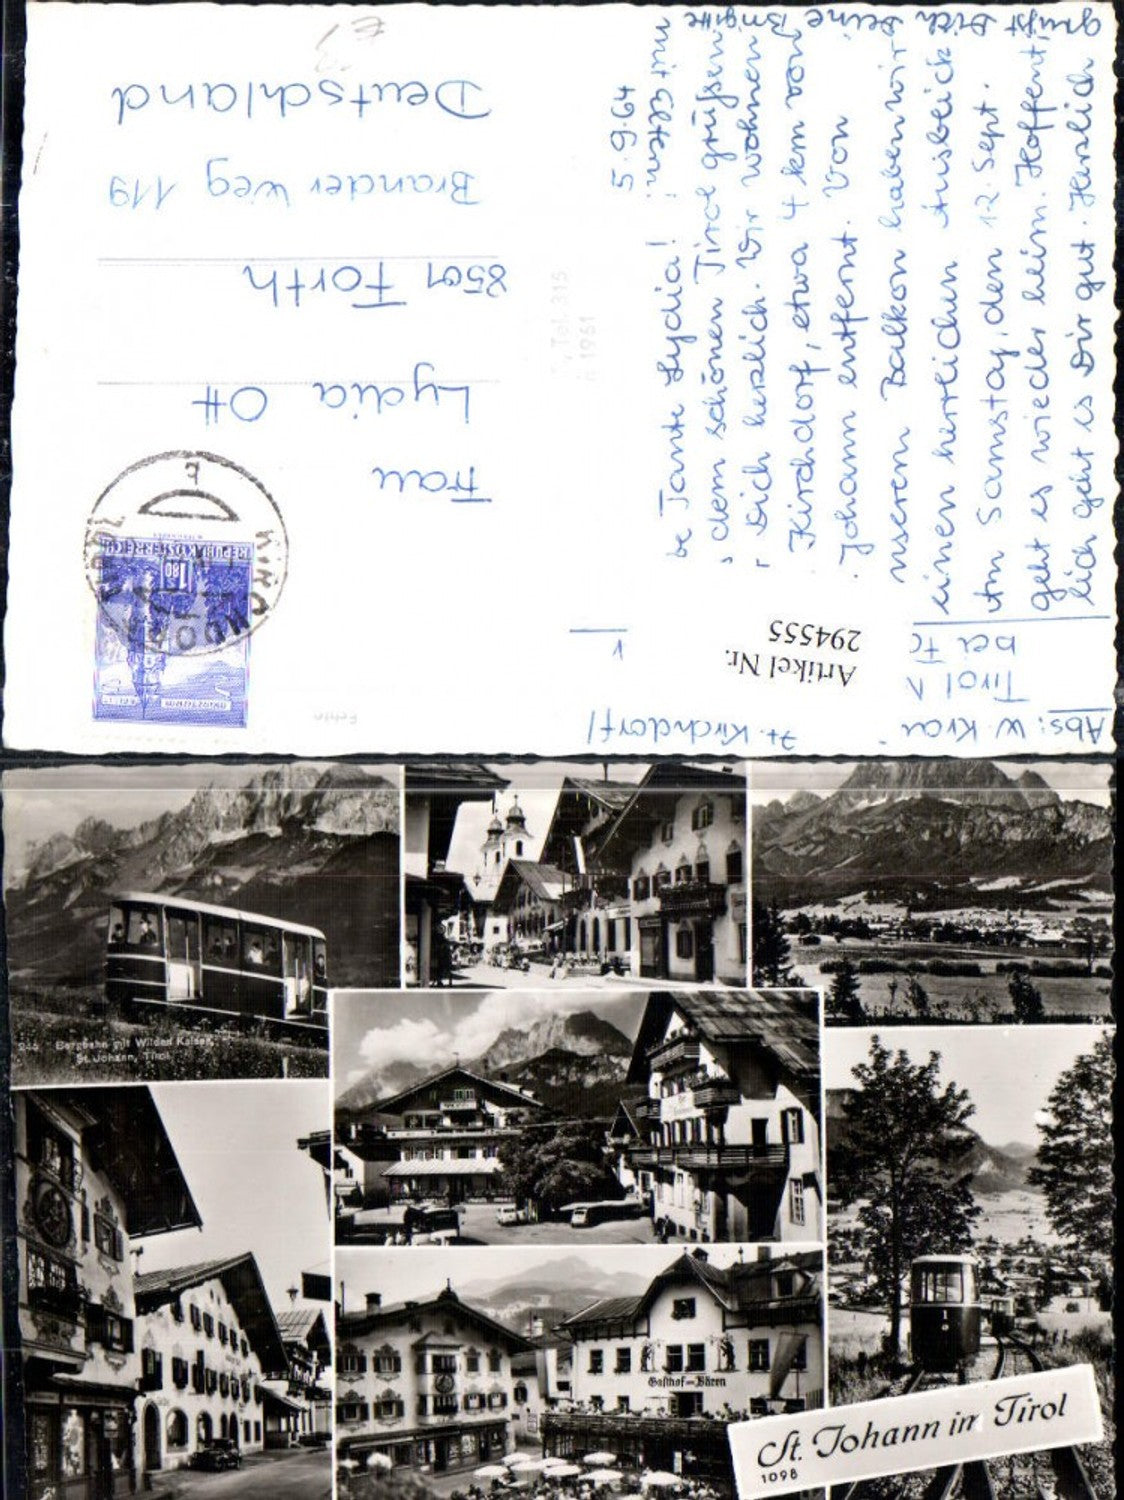 5.9.64
be Tante Lydia! mit Eltern!
dem schönen Tirol grüßen
Dich herzlich. Wir wohnen
Kirchdorf, etwa 4 km von
Johann entfernt. Von
unserem Balkon haben wir
einen herrlichen Ausblick
Am Samstag, den 12. Sept.
geht es wieder heim. Hoffent
lich geht es Dir gut. Herzlich
grüßt Dich Deine Brigitte
Abs: W. Krau
Tirol
bei
Kirchdorf
Artikel Nr.
294555
Frau
Lydia Ott
8501 Forth
Brander Weg 119
Deutschland
REPUBLIK ÖSTERREICH
S 1.80
KIRCHDORF
TIROL
Tel. 315
1961
Bergbahn mit Wilden Kaiser,
St. Johann, Tirol
Gasthof zum Bären
St. Johann in Tirol
1098